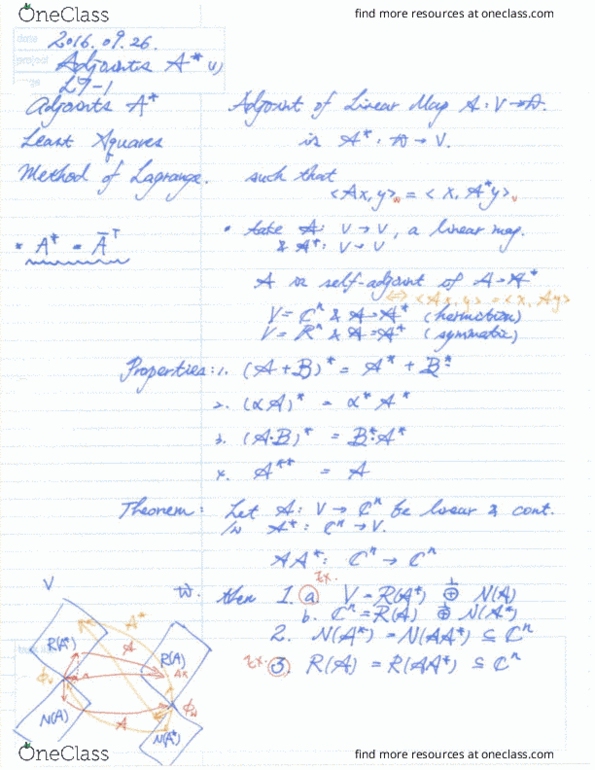 OneClass
find more resources at oneclass.com
date
2016.09.26.
project
Adjoints A* (1)
L7-1
Adjoints A*
Adjoint of Linear Map A: V→W.
Least Squares
is A*: W→V.
Method of Lagrange.
such that
<Ax,y>w = <x,A*y>v
* A* = Āᵀ
• take A: V→V, a linear map.
& A*: V→V
A is self-adjoint if A=A*
⇔ <Ax,y> = <x,Ay>
V=Cⁿ & A=A* (hermitian)
V=Rⁿ & A=A* (symmetric)
Properties: 1. (A+B)* = A* + B*
2. (αA)* = α* A*
3. (A·B)* = B*·A*
4. A** = A
Theorem: Let A: V→Cⁿ be linear & cont.
A*: Cⁿ→V.
AA*: Cⁿ→Cⁿ
Ex.
V
W.
then 1. a V=R(A*) ⊕ N(A)
b. Cⁿ=R(A) ⊕ N(A*)
2. N(A*) = N(AA*) ⊆ Cⁿ
Ex. 3. R(A) = R(AA*) ⊆ Cⁿ
A*
R(A*)
A
R(A)
Ax
ϕv
ϕw
N(A)
A
N(A*)
OneClass
find more resources at oneclass.com